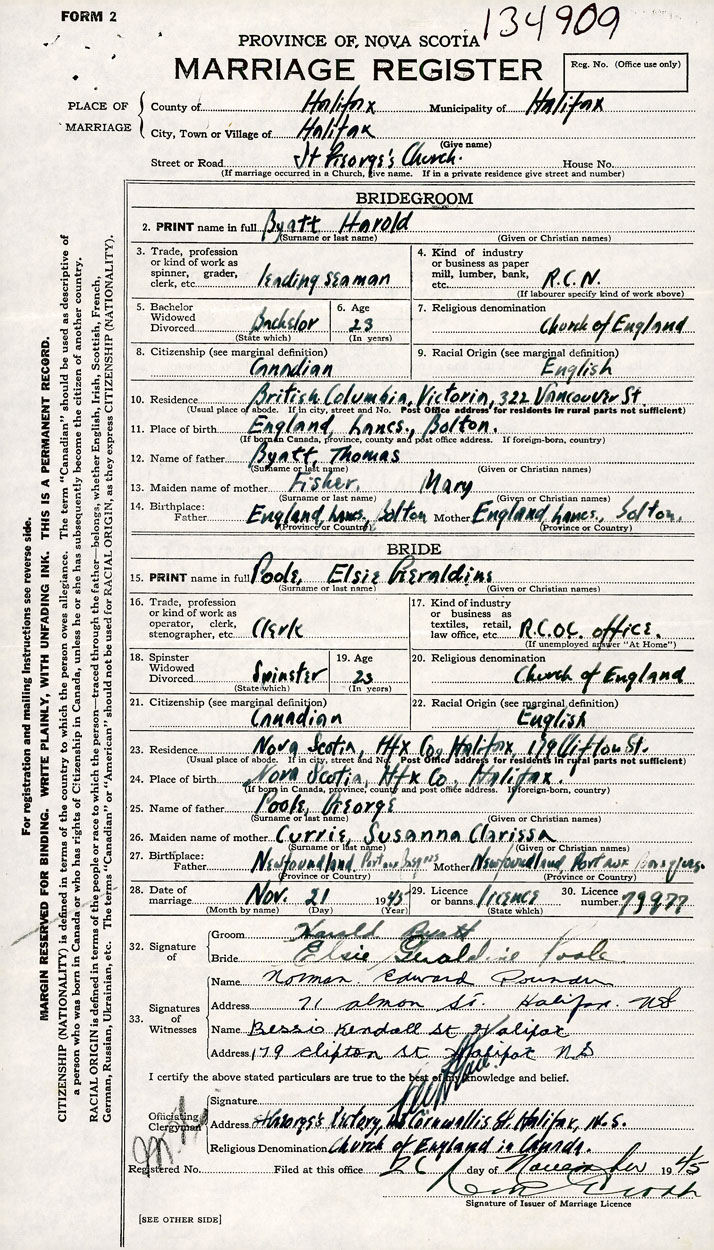 FORM 2
134909
PROVINCE OF NOVA SCOTIA
MARRIAGE REGISTER
Reg. No. (Office use only)
PLACE OF MARRIAGE
County of Halifax Municipality of Halifax
City, Town or Village of Halifax
(Give name)
Street or Road St George's Church. House No.
(If marriage occurred in a Church, give name. If in a private residence give street and number)
BRIDEGROOM
2. PRINT name in full Byatt Harold
(Surname or last name) (Given or Christian names)
3. Trade, profession or kind of work as spinner, grader, clerk, etc. leading seaman
4. Kind of industry or business as paper mill, lumber, bank, etc. R.C.N.
(If labourer specify kind of work above)
5. Bachelor Widowed Divorced Bachelor
(State which)
6. Age 23
(In years)
7. Religious denomination
Church of England
8. Citizenship (see marginal definition)
Canadian
9. Racial Origin (see marginal definition)
English
10. Residence British Columbia, Victoria, 322 Vancouver St.
(Usual place of abode. If in city, street and No. Post Office address for residents in rural parts not sufficient)
11. Place of birth England, Lancs., Bolton.
(If born in Canada, province, county and post office address. If foreign-born, country)
12. Name of father Byatt, Thomas
(Surname or last name) (Given or Christian names)
13. Maiden name of mother Fisher, Mary
(Surname or last name) (Given or Christian names)
14. Birthplace: Father England, Lancs, Bolton Mother England Lancs., Bolton.
(Province or Country) (Province or Country)
BRIDE
15. PRINT name in full Poole, Elsie Geraldine
(Surname or last name) (Given or Christian names)
16. Trade, profession or kind of work as operator, clerk, stenographer, etc. Clerk
17. Kind of industry or business as textiles, retail, law office, etc. R.C.O.C. office.
(If unemployed answer "At Home")
18. Spinster Widowed Divorced Spinster
(State which)
19. Age 23
(In years)
20. Religious denomination
Church of England
21. Citizenship (see marginal definition)
Canadian
22. Racial Origin (see marginal definition)
English
23. Residence Nova Scotia, Hfx Co, Halifax, 179 Clifton St.
(Usual place of abode. If in city, street and No. Post Office address for residents in rural parts not sufficient)
24. Place of birth Nova Scotia, Hfx Co, Halifax.
(If born in Canada, province, county and post office address. If foreign-born, country)
25. Name of father Poole, George
(Surname or last name) (Given or Christian names)
26. Maiden name of mother Currie, Susanna Clarissa
(Surname or last name) (Given or Christian names)
27. Birthplace: Father Newfoundland, Port aux Basques Mother Newfoundland, Port aux Basques.
(Province or Country) (Province or Country)
28. Date of marriage Nov. 21 1945
(Month by name) (Day) (Year)
29. Licence or banns. licence
(State which)
30. Licence number 79877
32. Signature of
Groom Harold Byatt
Bride Elsie Geraldine Poole
33. Signatures of Witnesses
Name Norman Edward
Address 71 Almon St. Halifax. NS
Name Bessie Kendall St Halifax
Address 179 Clifton St Halifax N S
I certify the above stated particulars are true to the best of my knowledge and belief.
Officiating Clergyman
Signature
Address St George's Cornwallis St Halifax, N.S.
Religious Denomination Church of England in Canada.
Registered No. Filed at this office 26 day of November 1945
Signature of Issuer of Marriage Licence
[SEE OTHER SIDE]
For registration and mailing instructions see reverse side.
MARGIN RESERVED FOR BINDING. WRITE PLAINLY, WITH UNFADING INK. THIS IS A PERMANENT RECORD.
CITIZENSHIP (NATIONALITY) is defined in terms of the country to which the person owes allegiance. The term "Canadian" should be used as descriptive of
a person who was born in Canada or who has rights of Citizenship in Canada, unless he or she has subsequently become the citizen of another country.
RACIAL ORIGIN is defined in terms of the people or race to which the person—traced through the father—belongs, whether English, Irish, Scottish, French,
German, Russian, Ukrainian, etc. The terms "Canadian" or "American" should not be used for RACIAL ORIGIN, as they express CITIZENSHIP (NATIONALITY).